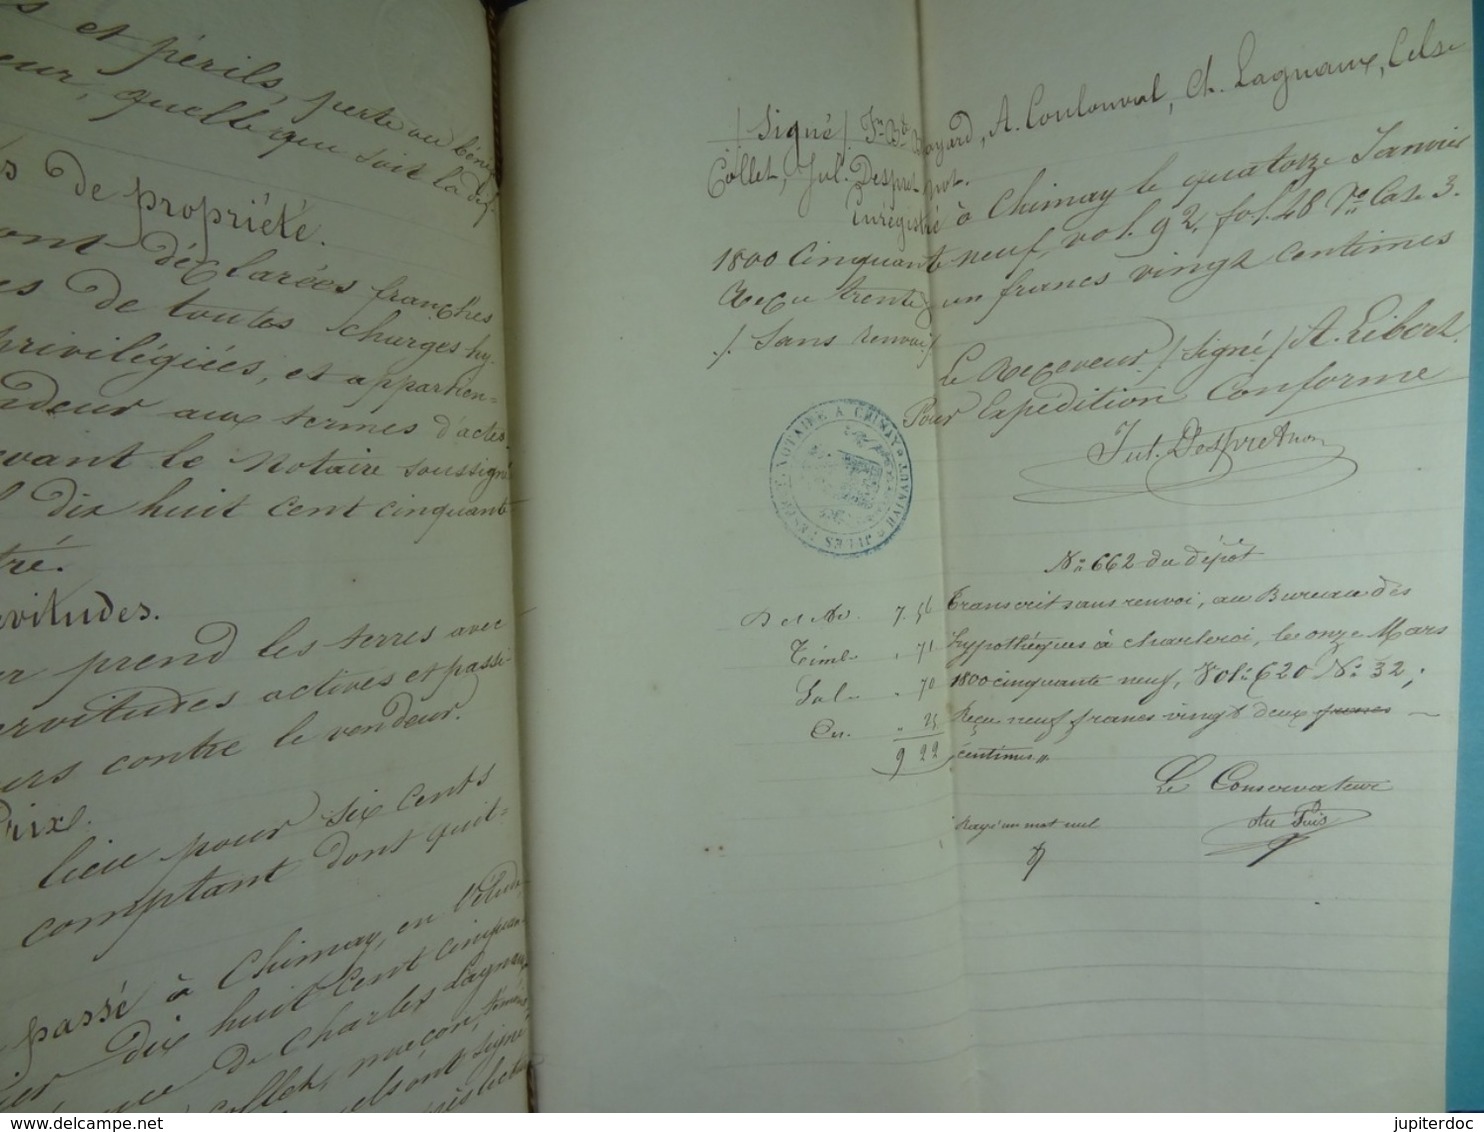 et périls, perte ou béné
eur, quelle que soit la dif
de propriété.
ont déclarées franches
es de toutes charges hy-
privilégiées, et appartien=
ndeur aux termes d'actes
evant le Notaire soussigné
dix huit cent cinquante
tré.
rvitudes.
er prend les terres avec
ervitudes actives et passi
ers contre le vendeur.
Prix.
lieu pour six cents
comptant dont quit=
passé à Chimay, en l'étude
dix huit cent cinquan
de Charles Lagneau
Collet, maçon, témoins
/Signé/ Bayard, A. Coulonval, Ch. Lagneaux, Celse
Collet, Jul. Despret not.
Enrégistré à Chimay le quatorze Janvier
1800 Cinquante neuf, vol. 92, fol. 48 Vo Case 3.
Reçu trente un francs vingt centimes
./. Sans renvoi/
Le Receveur /signé/ A. Libert.
Pour Expédition Conforme
Jul. Despret non
NOTAIRE A CHIMAY HAINAUT JULES DESPRET
No 662 du dépôt
7.56 Transcrit sans renvoi, au Bureau des
Timb. " 71 hypothèques à Charleroi, le onze Mars
Sal. " 70 1800 cinquante neuf, Vol: 620 No 32;
" 25 Reçu neuf francs vingt deux francs
9 22 centimes "
Le Conservateur
Rayé un mot nul